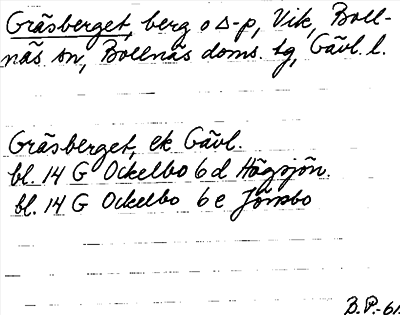 Gräsberget, berg o Δ-p, Vik, Boll-
näs sn, Bollnäs doms. tg, Gävl. l.
Gräsberget, ek Gävl.
bl. 14 G Ockelbo 6d Högsjön.
bl. 14 G Ockelbo 6e Jömsbo
B.P.-61.